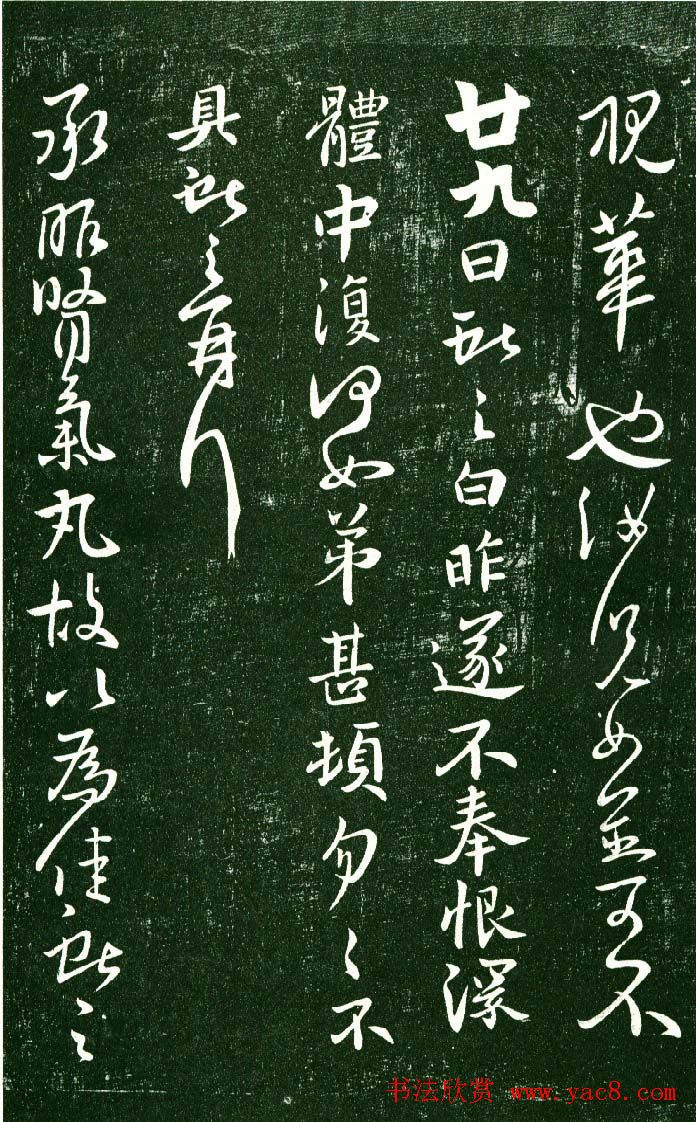 華也汝兒女並可不
廿九日獻之白昨遂不奉恨深
體中復何如弟甚頓匆匆不
具獻之再拜
承服腎氣丸故以為佳獻之
书法欣赏 www.yac8.com